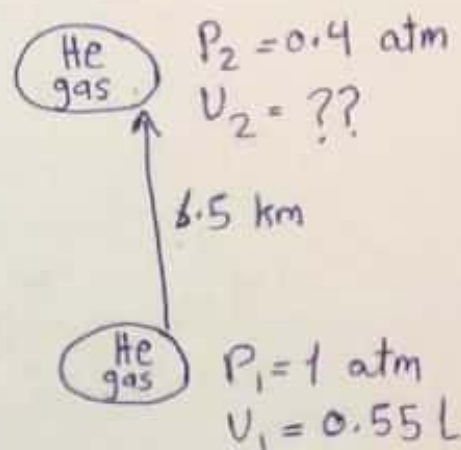 He
gas
P₂ = 0.4 atm
V₂ = ??
6.5 km
He
gas
P₁ = 1 atm
V₁ = 0.55 L